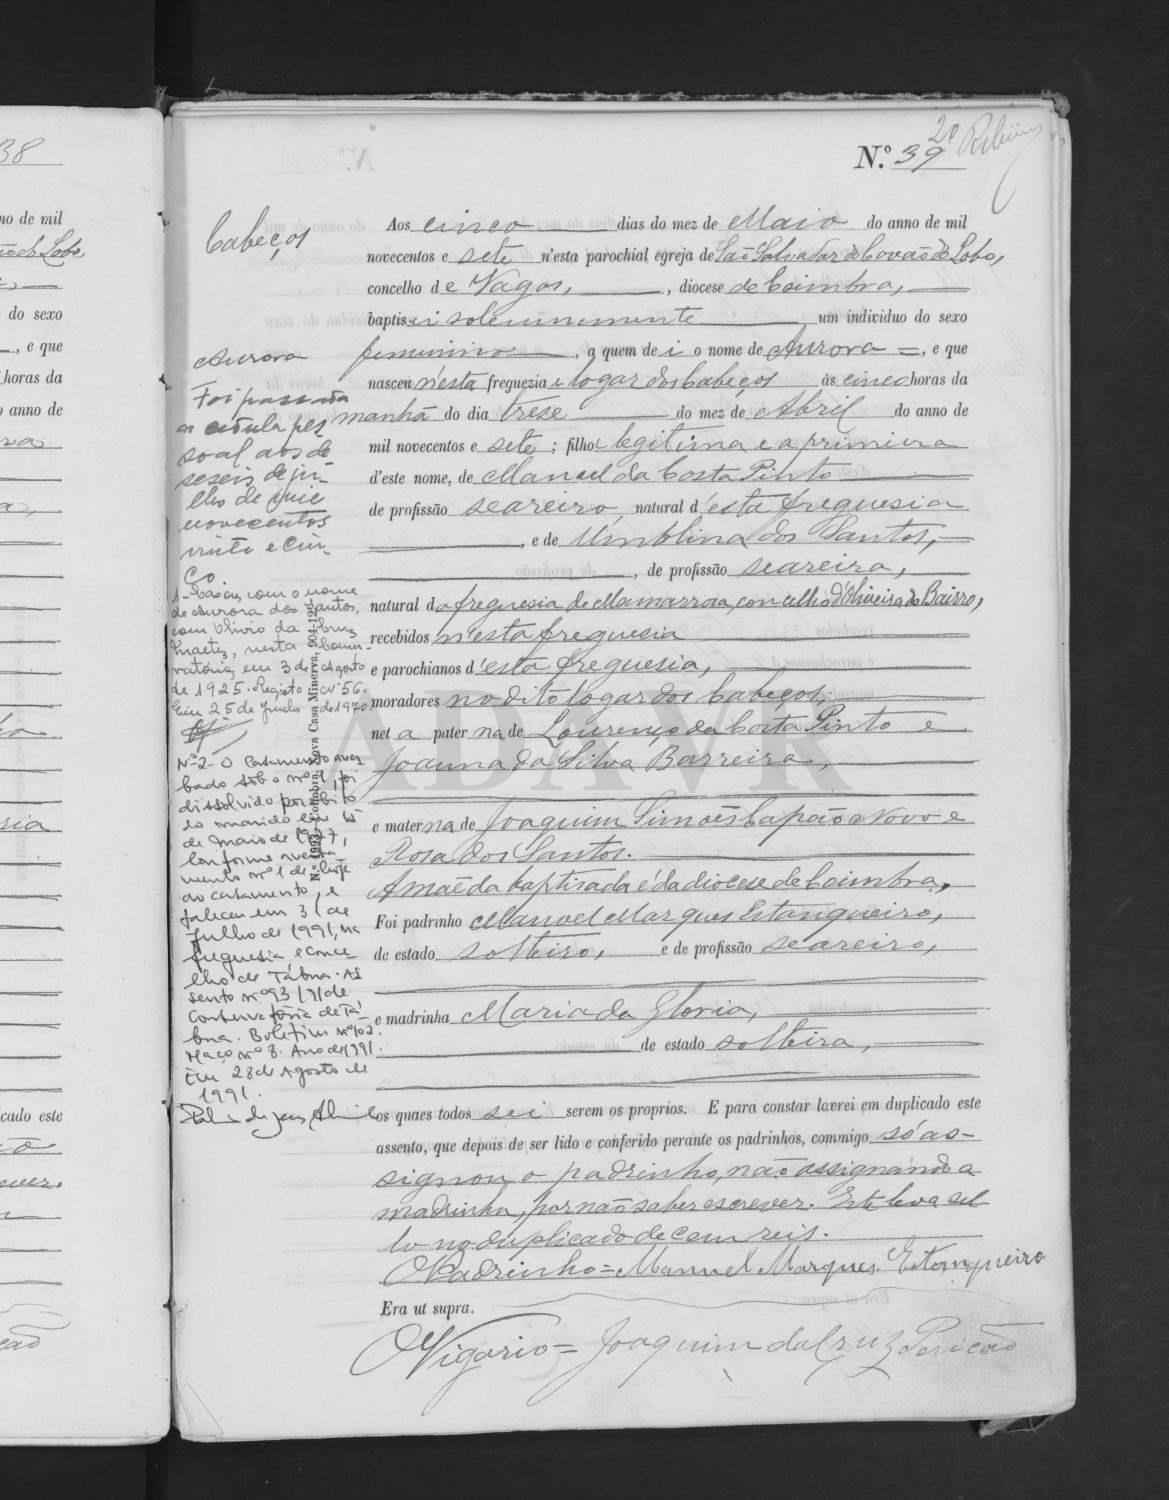 Nº 39
20
Cabeços
Aurora
Foi passada
a cedula pes
soal aos de
seseis de ju-
lho de
novecentos
vinte e cin-
co.
1 - Casou com o nome
de Aurora dos Santos,
com Olivio da Cruz
nesta Conser-
vatória, em 3 de Agosto
de 1925. Registo nº 56.
Em 25 de Junho de 1970
Nº 2 - O Casamento aver
bado sob o nº 1, foi
dissolvido por óbito
do marido em
de Maio de 1977,
conforme averba
mento nº 1 de
ao casamento, e
faleceu em 31 de
Julho de 1991, na
freguesia e conce-
lho de Tábua. As
sento nº 93/91 de
Conservatória de Tá-
bua. Boletim nº 102.
Maço nº 8. Ano de 1991.
Em 28 de Agosto de
1991.
Aos cinco dias do mez de Maio do anno de mil
novecentos e sete n'esta parochial egreja de São Salvador de Covão do Lobo,
concelho de Vagos, , diocese de Coimbra,
baptisei solemnemente um individuo do sexo
femenino , a quem dei o nome de Aurora =, e que
nasceu n'esta freguezia e logar dos Cabeços ás cinco horas da
manhã do dia trese do mez de Abril do anno de
mil novecentos e sete ; filha legitima e a primeira
d'este nome, de Manuel da Costa Pinto
de profissão seareiro, natural d'esta freguesia
, e de Umblina dos Santos,
, de profissão seareira,
natural da freguesia de Mamarrosa, concelho d'Oliveira do Bairro,
recebidos n'esta freguesia
e parochianos d'esta freguesia,
moradores no dito logar dos Cabeços,
neta paterna de Lourenço da Costa Pinto e
Joanna da Silva Barreira,
e materna de Joaquim Simões Capão Novo e
Rosa dos Santos.
A mãe da baptisada é da diocese de Coimbra.
Foi padrinho Manoel Marques Estanqueiro,
de estado solteiro, e de profissão seareiro,
e madrinha Maria da Gloria,
de estado solteira,
os quaes todos sei serem os proprios. E para constar lavrei em duplicado este
assento, que depois de ser lido e conferido perante os padrinhos, commigo só as-
signou o padrinho, não assignando a
madrinha, por não saber escrever. Este leva sel
lo no duplicado de cem reis.
O Padrinho = Manuel Marques Estanqueiro
Era ut supra.
O Vigario = Joaquim da Cruz Pericão
Nº 1993 — Coimbra, Nova Casa Minerva, 904-1205
ADAVR
38
no de mil
do sexo
, e que
horas da
anno de
icado este